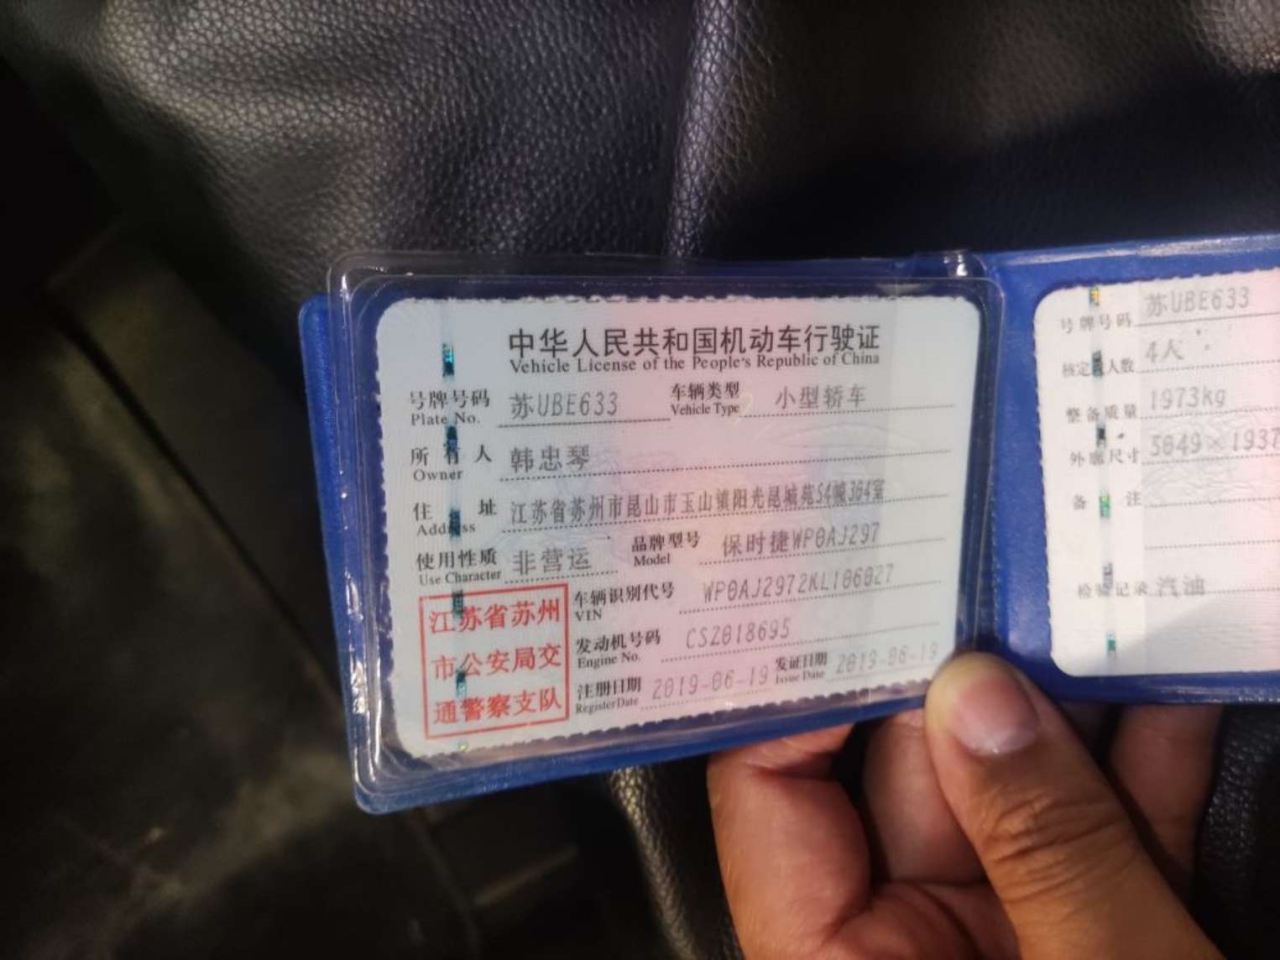 中华人民共和国机动车行驶证
Vehicle License of the People's Republic of China
号牌号码 苏UBE633 车辆类型 小型轿车
Plate No. Vehicle Type
所有人 韩忠琴
Owner
住址 江苏省苏州市昆山市玉山镇阳光昆城苑54幢304室
Address
使用性质 非营运 品牌型号 保时捷WP0AJ297
Use Character Model
江苏省苏州
市公安局交
通警察支队
车辆识别代号 WP0AJ2972KL106027
VIN
发动机号码 CSZ018695
Engine No.
注册日期 2019-06-19 发证日期 2019-06-19
Register Date Issue Date
号牌号码 苏UBE633
核定 人数 4人
整备质量 1973kg
外廓尺寸 5049×1937
备注
检验记录 汽油